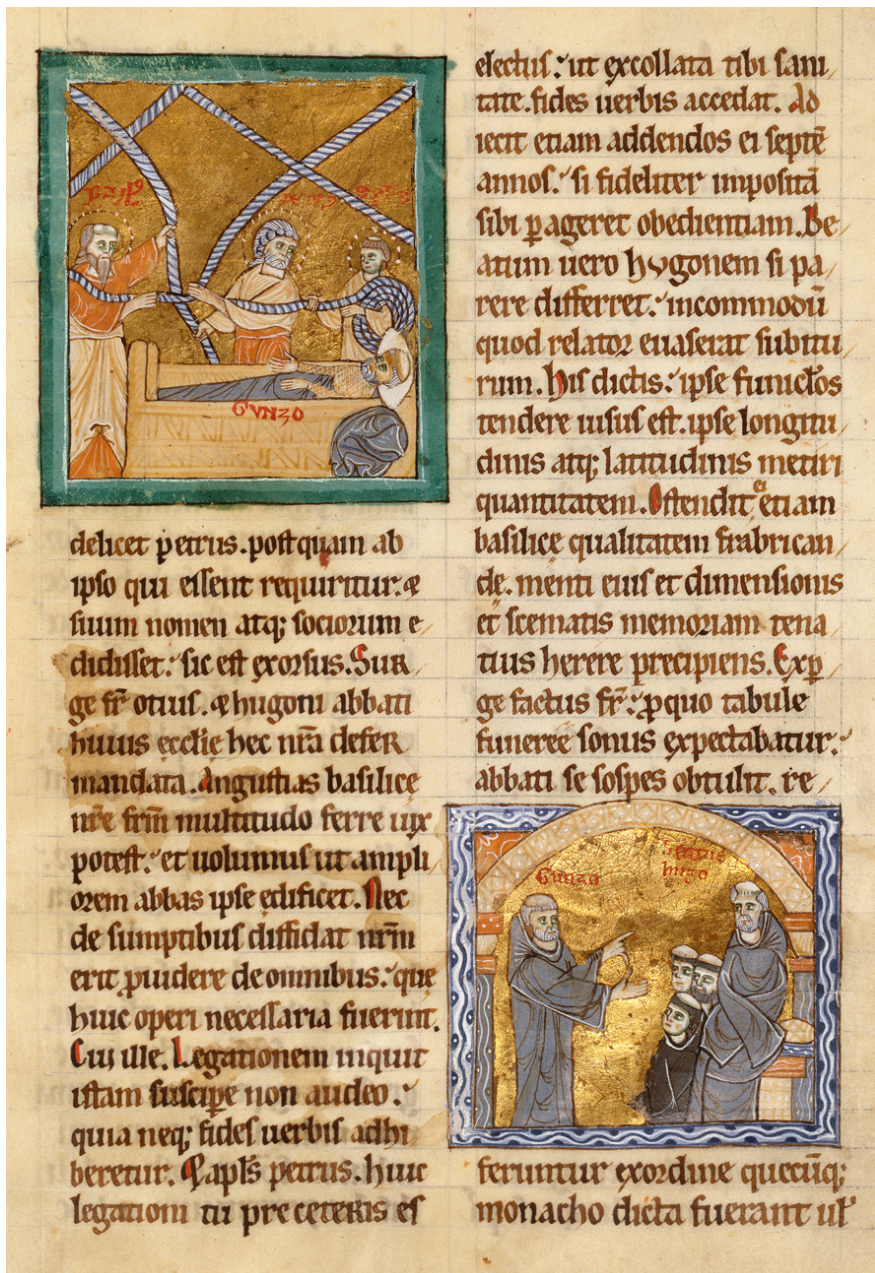 GVNZO
delicet petrus. postquam ab
ipso qui essent requiritur. &
suum nomen atq; sociorum e
didisset: sic est exorsus. Sur
ge fr̄ otius. & hugoni abbati
huius ecclīe hec nr̄a defer
mandata. Angustias basilicę
nr̄e frm̄ multitudo ferre uix
potest. et uolumus ut ampli
orem abbas ipse edificet. Nec
de sumptibus diffidat nr̄m
erit ꝓuidere de omnibus. quę
huic operi necessaria fuerint.
Cui ille. Legationem inquit
istam suscipe non audeo.
quia neq; fides uerbis adhi
beretur. Cui apl̄s petrus. huic
legationi tu pre ceteris es
electus: ut ex collata tibi sani
tate. fides uerbis accedat. Ad
iecit etiam addendos ei septē
annos. si fideliter impositā
sibi ꝑageret obedientiam. Be
atum uero hugonem si pa
rere differret: incommodū
quod relator euaserat subitu
rum. His dictis: ipse funiclos
tendere uisus est. ipse longitu
dinis atq; latitudinis metiri
quantitatem. Ostendit ei etiam
basilicę qualitatem frabrican
dę. menti eius et dimensionis
et scematis memoriam tena
tius herere precipiens. Exꝑ
ge factus fr̄: ꝓ quo tabule
funeree sonus expectabatur.
abbati se sospes obtulit. re
Gunzo
hugo
feruntur ex ordine quecūq;
monacho dicta fuerant ul̄